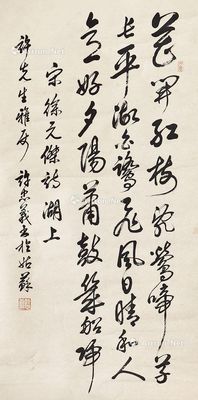 花開紅樹亂鶯啼草
長平湖白鷺飛風日晴和人
意好夕陽簫鼓幾船歸
宋徐元傑詩湖上
許先生雅屬 許忠義書於姑蘇